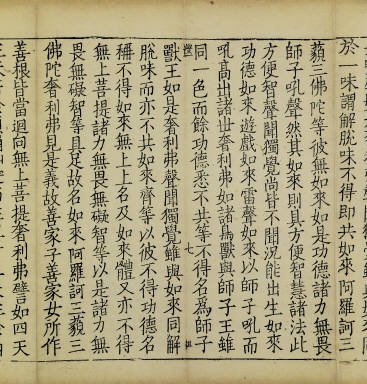 於一味謂解脫味不得即共如來阿羅訶三
藐三佛陀等彼無如來如是功德諸力無畏
師子吼聲然其如來則具方便智慧諸法此
方便智聲聞獨覺尚皆不聞況能出生如來
功德如來遊戲如來雷聲如來以師子吼而
吼高出諸世奢利弗如諸鳥獸與師子王雖
同一色而餘功德悉不共等不得名為師子
七
獸王如是奢利弗聲聞獨覺雖與如來同解
脫味而亦不共如來齊等以彼不得功德名
稱不得如來無上上名及如來體又亦不得
無上菩提諸力無畏無礙智等以是諸力無
畏無礙智等具足故名如來阿羅訶三藐三
佛陀奢利弗見是義故善家子善家女所作
善根皆當迴向無上菩提奢利弗譬如四天